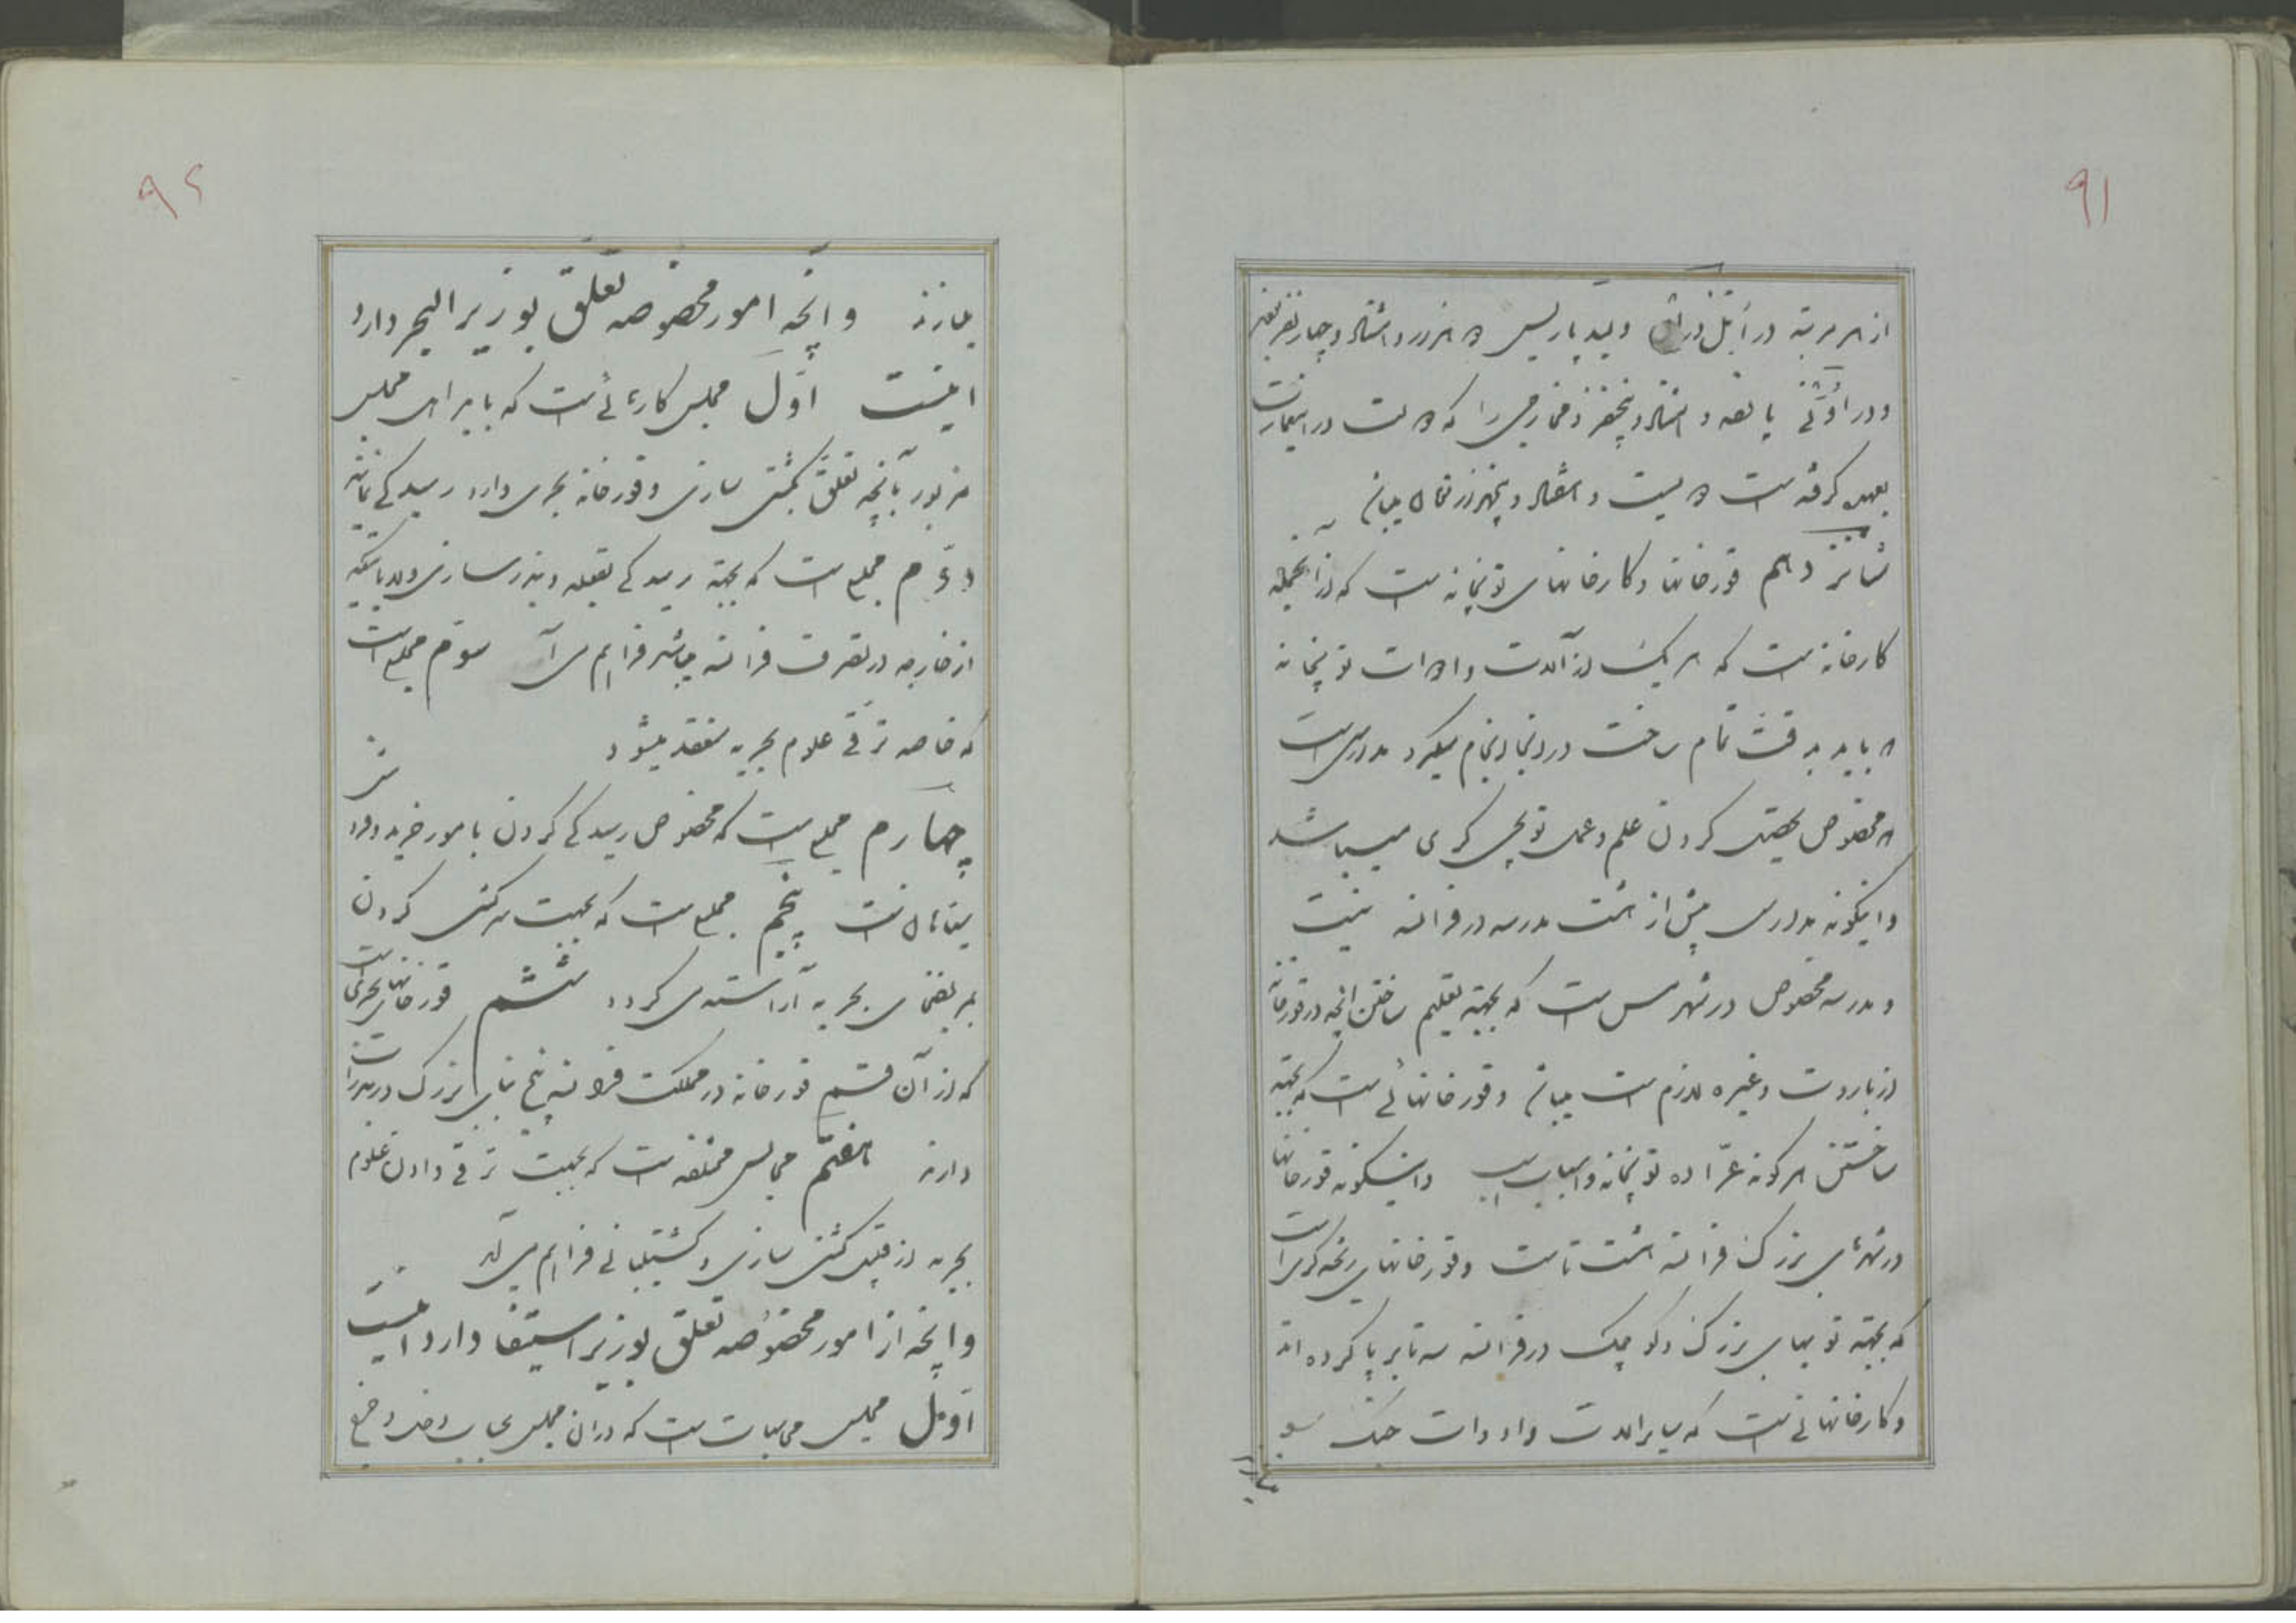 ۹۱
از هر مرتبه در
و در پانصد و هشتاد و پنجنفر را که در
گرفته است و هشتاد و پنجهزار
شانزدهم قورخانها و کارخانهای توپخانه است که از آنجمله
کارخانه است که هر یک از آلات و ادوات توپخانه
را باید بدقت تمام ساخت در اینجا انجام میگیرد مدارسی است
که مخصوص تحصیل کردن علم و عمل توپچی گری میباشد
و اینگونه مدارس بیش از هشت مدرسه در فرانسه نیست
و مدرسه مخصوص در شهر مس است که بجهته تعلیم ساختن آنچه در قورخانه
از باروت و غیره لازم است میباشد و قورخانهائی است که بجهته
ساختن هر گونه عرّاده توپخانه و اسباب اسب و اینگونه قورخانها
در شهرهای بزرگ فرانسه هشت تا است و قورخانهای ریخته گری است
که بجهته توپهای بزرگ و کوچک در فرانسه سه تا برپا کرده اند
و کارخانهائی است که سایر آلات و ادوات جنگ
۹۲
میسازند و آنچه امور مخصوصه تعلّق بوزیر البحر دارد
اینست اوّل مجلس است که با مجلس
مزبور بآنچه تعلّق بکشتی سازی و قورخانه بحری دارد رسیدگی نمایند
دوّم مجلسی است که بجهته رسیدگی بقلعه و بندر سازی ولایاتیکه
از خارجه در تصرف فرانسه میباشد فراهم می آید سوّم مجلسی است
که خاصه ترقی علوم بحریه منعقد میشود
چهارم مجلسی است که مخصوص رسیدگی کردن بامور خرید و فروش
است پنجم مجلسی است که بجهت سرکشی کردن
بمریضهای بحریه آراسته می گردد ششم قورخانهای بحری است
که از آن قسم قورخانه در مملکت فرانسه پنج بنای بزرگ در بندرات
دارند هفتم مجالس مختلفه است که بجهت ترقی دادن علوم
بحریه از قبیل کشتی سازی و کشتیبانی فراهم می آید
و آنچه از امور مخصوصه تعلّق بوزیر استیفا دارد اینست
اوّل مجلس محاسبات است که در آن مجلس حساب دخل و خرج